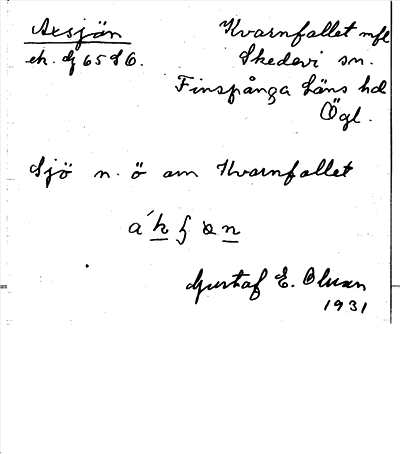 Axsjön
ek. bl 65 S6.
Kvarnfallet mfl
Skedevi sn.
Finspånga Läns hd
Ögl.
Sjö n. ö om Kvarnfallet
Gustaf E. Olsson
1931